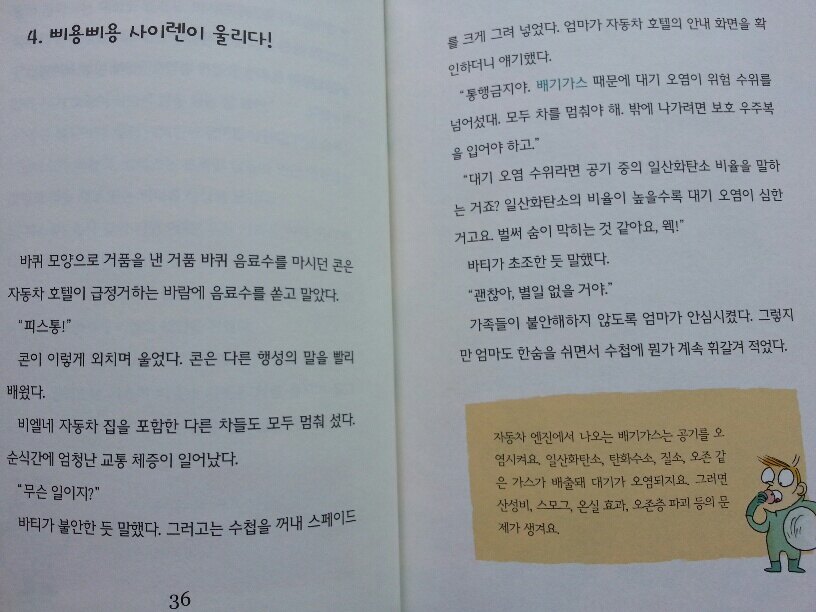 4. 삐용삐용 사이렌이 울리다!
바퀴 모양으로 거품을 낸 거품 바퀴 음료수를 마시던 콘은
자동차 호텔이 급정거하는 바람에 음료수를 쏟고 말았다.
“피스통!”
콘이 이렇게 외치며 울었다. 콘은 다른 행성의 말을 빨리
배웠다.
비엘네 자동차 집을 포함한 다른 차들도 모두 멈춰 섰다.
순식간에 엄청난 교통 체증이 일어났다.
“무슨 일이지?”
바티가 불안한 듯 말했다. 그러고는 수첩을 꺼내 스페이드
36
를 크게 그려 넣었다. 엄마가 자동차 호텔의 안내 화면을 확
인하더니 얘기했다.
“통행금지야. 배기가스 때문에 대기 오염이 위험 수위를
넘어섰대. 모두 차를 멈춰야 해. 밖에 나가려면 보호 우주복
을 입어야 하고.”
“대기 오염 수위라면 공기 중의 일산화탄소 비율을 말하
는 거죠? 일산화탄소의 비율이 높을수록 대기 오염이 심한
거고요. 벌써 숨이 막히는 것 같아요, 웩!”
바티가 초조한 듯 말했다.
“괜찮아, 별일 없을 거야.”
가족들이 불안해하지 않도록 엄마가 안심시켰다. 그렇지
만 엄마도 한숨을 쉬면서 수첩에 뭔가 계속 휘갈겨 적었다.
자동차 엔진에서 나오는 배기가스는 공기를 오
염시켜요. 일산화탄소, 탄화수소, 질소, 오존 같
은 가스가 배출돼 대기가 오염되지요. 그러면
산성비, 스모그, 온실 효과, 오존층 파괴 등의 문
제가 생겨요.